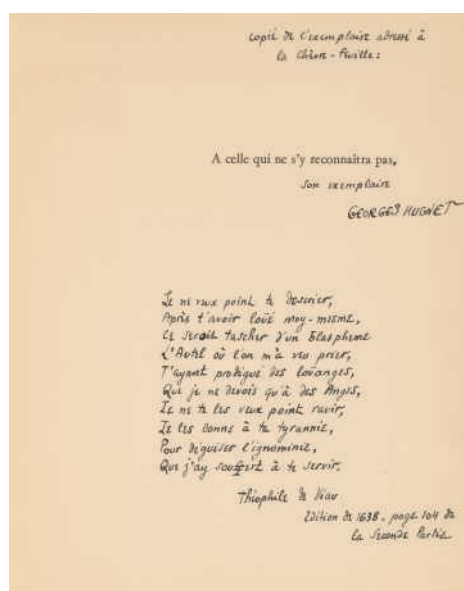 copié de l'exemplaire adressé à
la
A celle qui ne s'y reconnaîtra pas,
son exemplaire
GEORGES HUGNET
Ie ne veux point te descrier,
Après t'avoir loüé moy-mesme,
Ce seroit tascher d'un blaspheme
L'Autel où l'on m'a veu prier,
T'ayant prodigué des loüanges,
Que je ne devois qu'à des Anges,
Ie ne te les veux point ravir,
Ie les donne à ta tyrannie,
Pour déguiser l'ignominie,
Que j'ay souffert à te servir.
Théophile de Viau
Edition de 1638. page 104 de
la Seconde Partie